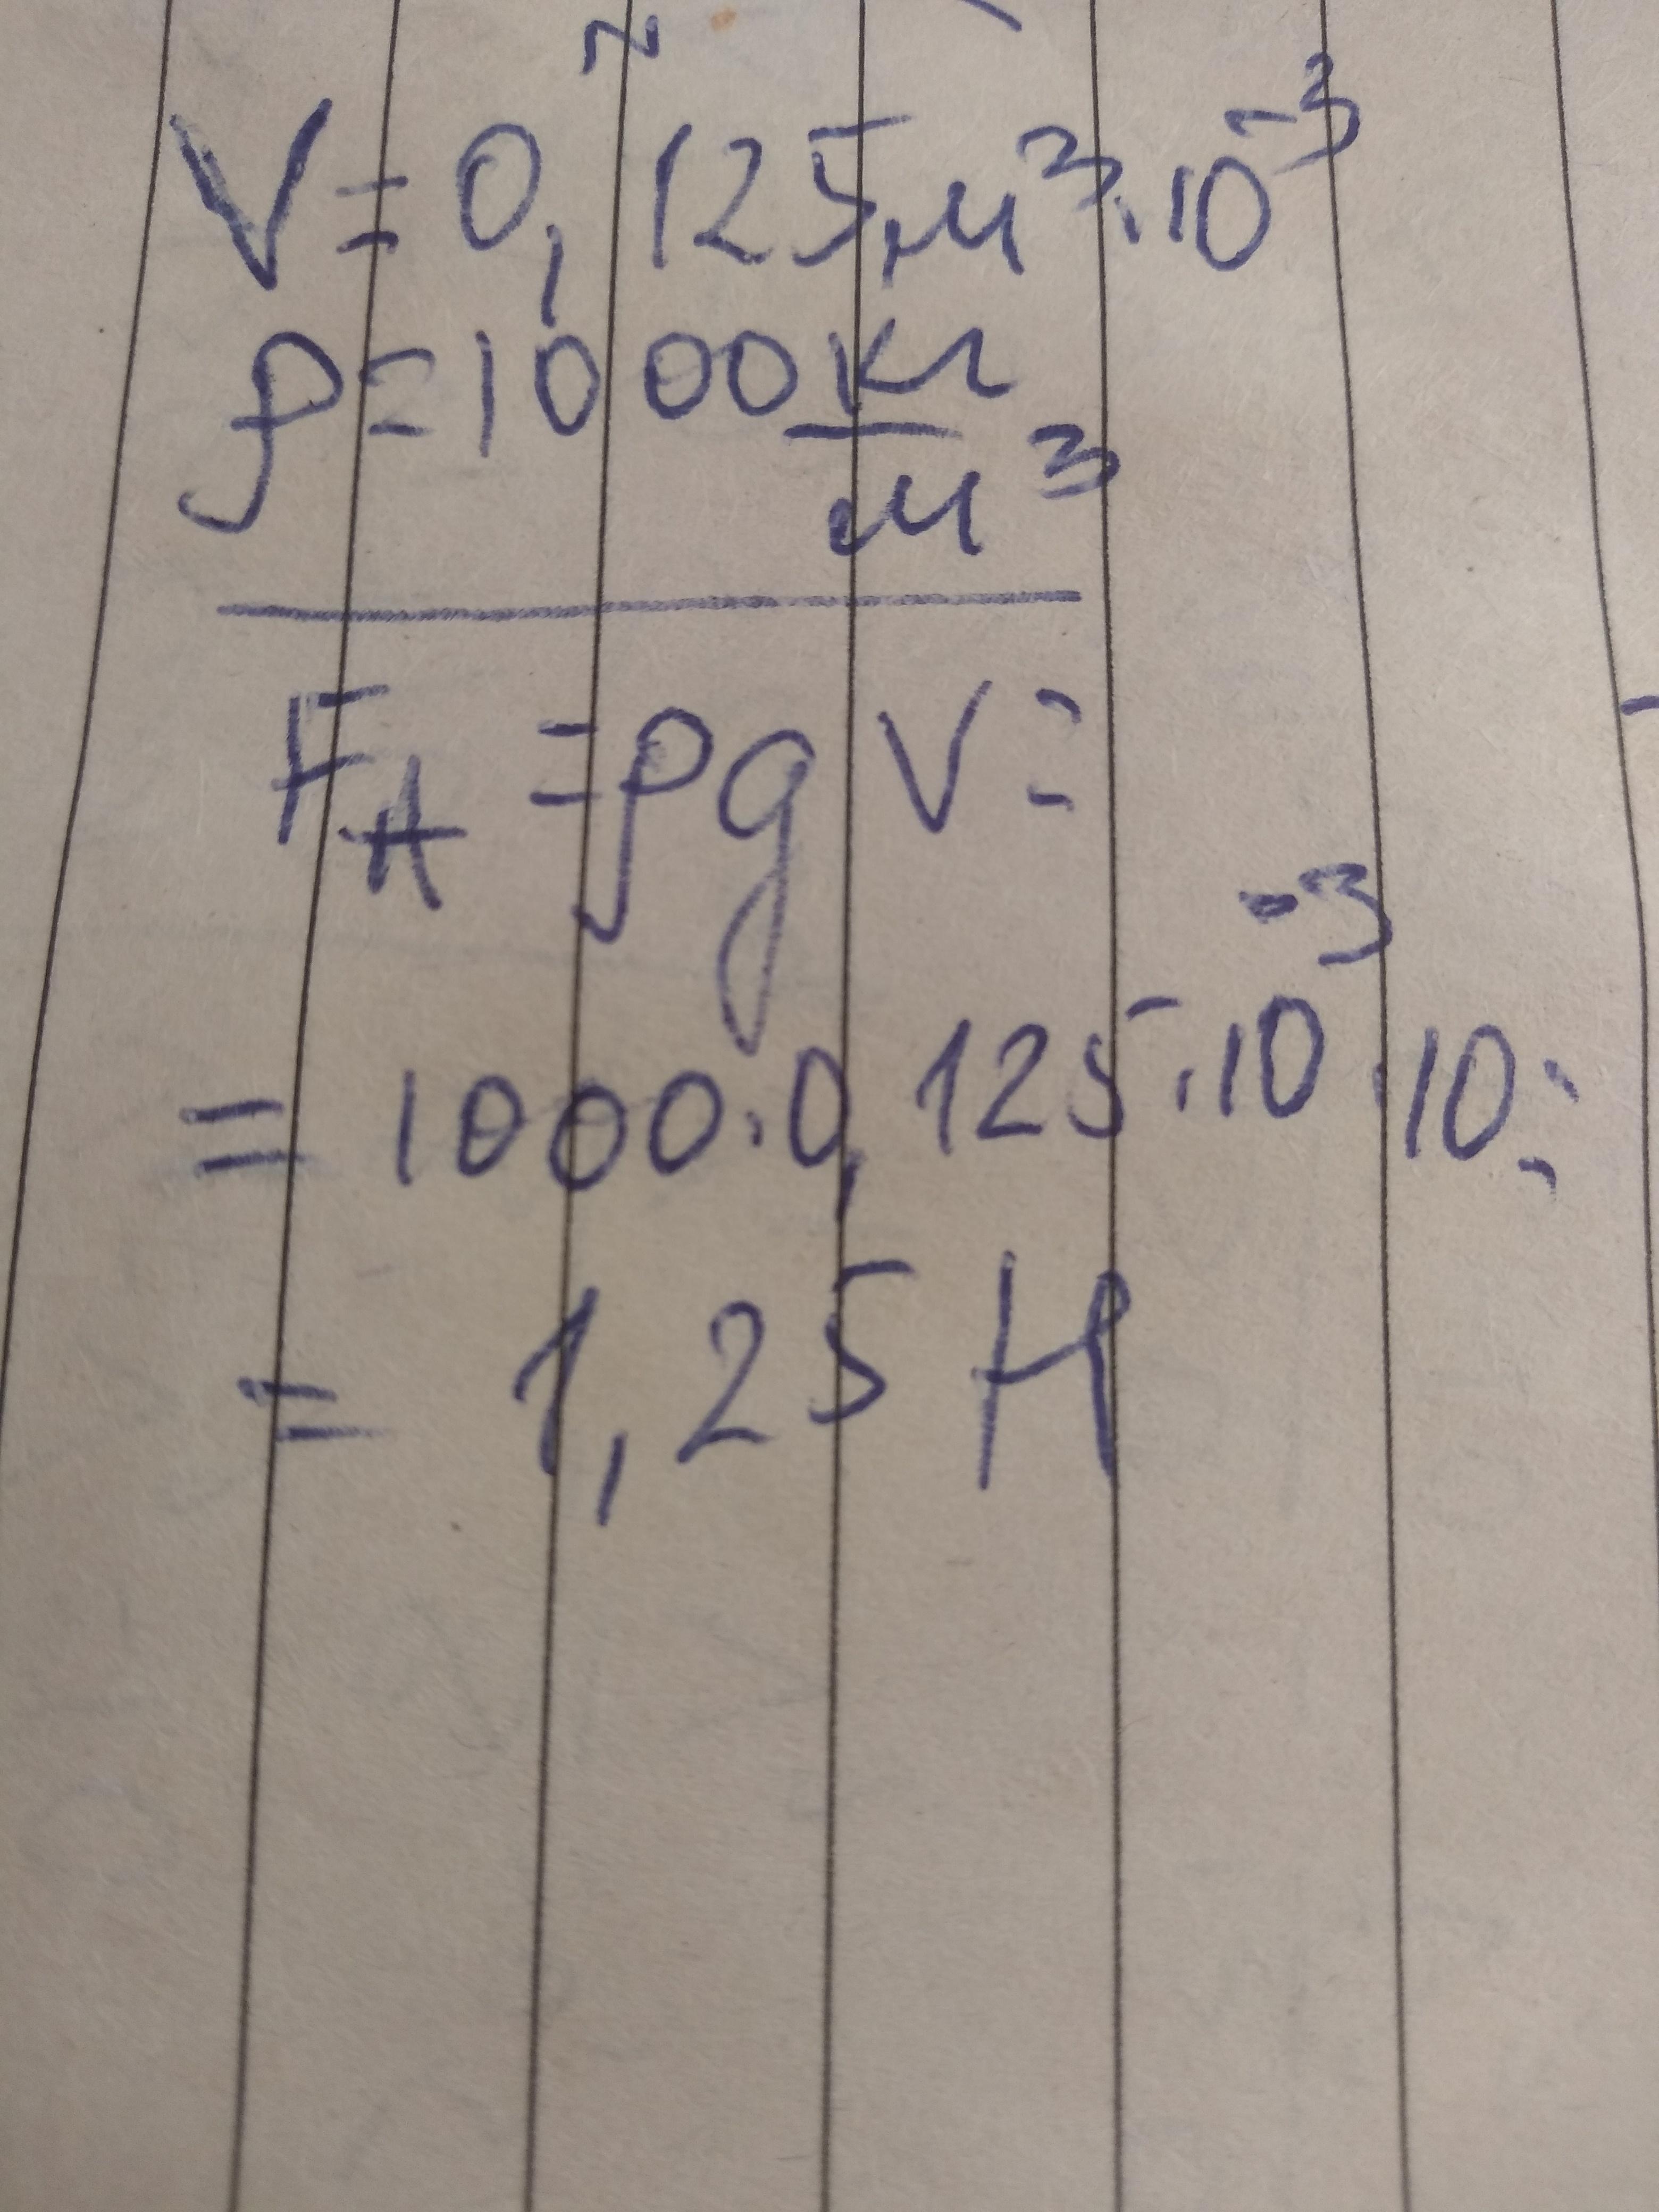 V=0,125м³·10⁻³
ρ=1000 кг/м³
F_A=ρgV=
=1000·0,125·10⁻³·10=
=1,25 Н